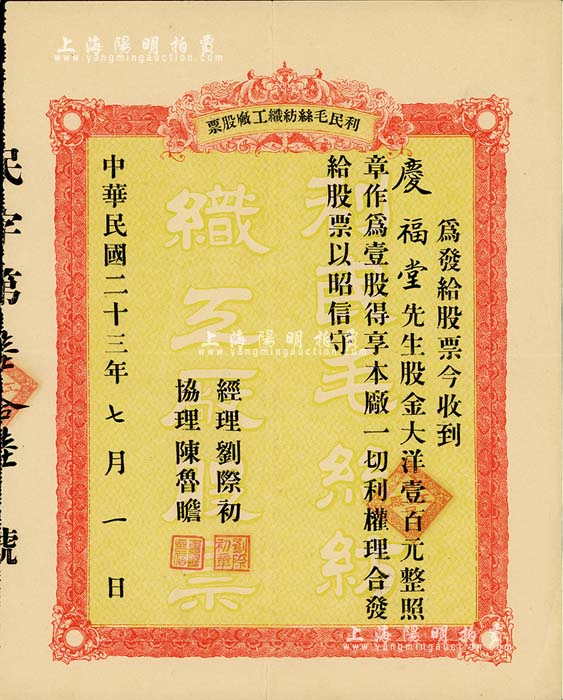 上海陽明拍賣
www.yangmingauction.com
利民毛絲紡織工廠股票
爲發給股票今收到
慶福堂先生股金大洋壹百元整照
章作爲壹股得享本廠一切利權理合發
給股票以昭信守
經理劉際初
協理陳魯瞻
中華民國二十三年七月一日
民字第 拾陸號
上海陽明拍賣
www.yangmingauction.com
上海陽明拍賣
www.yangmingauction.com